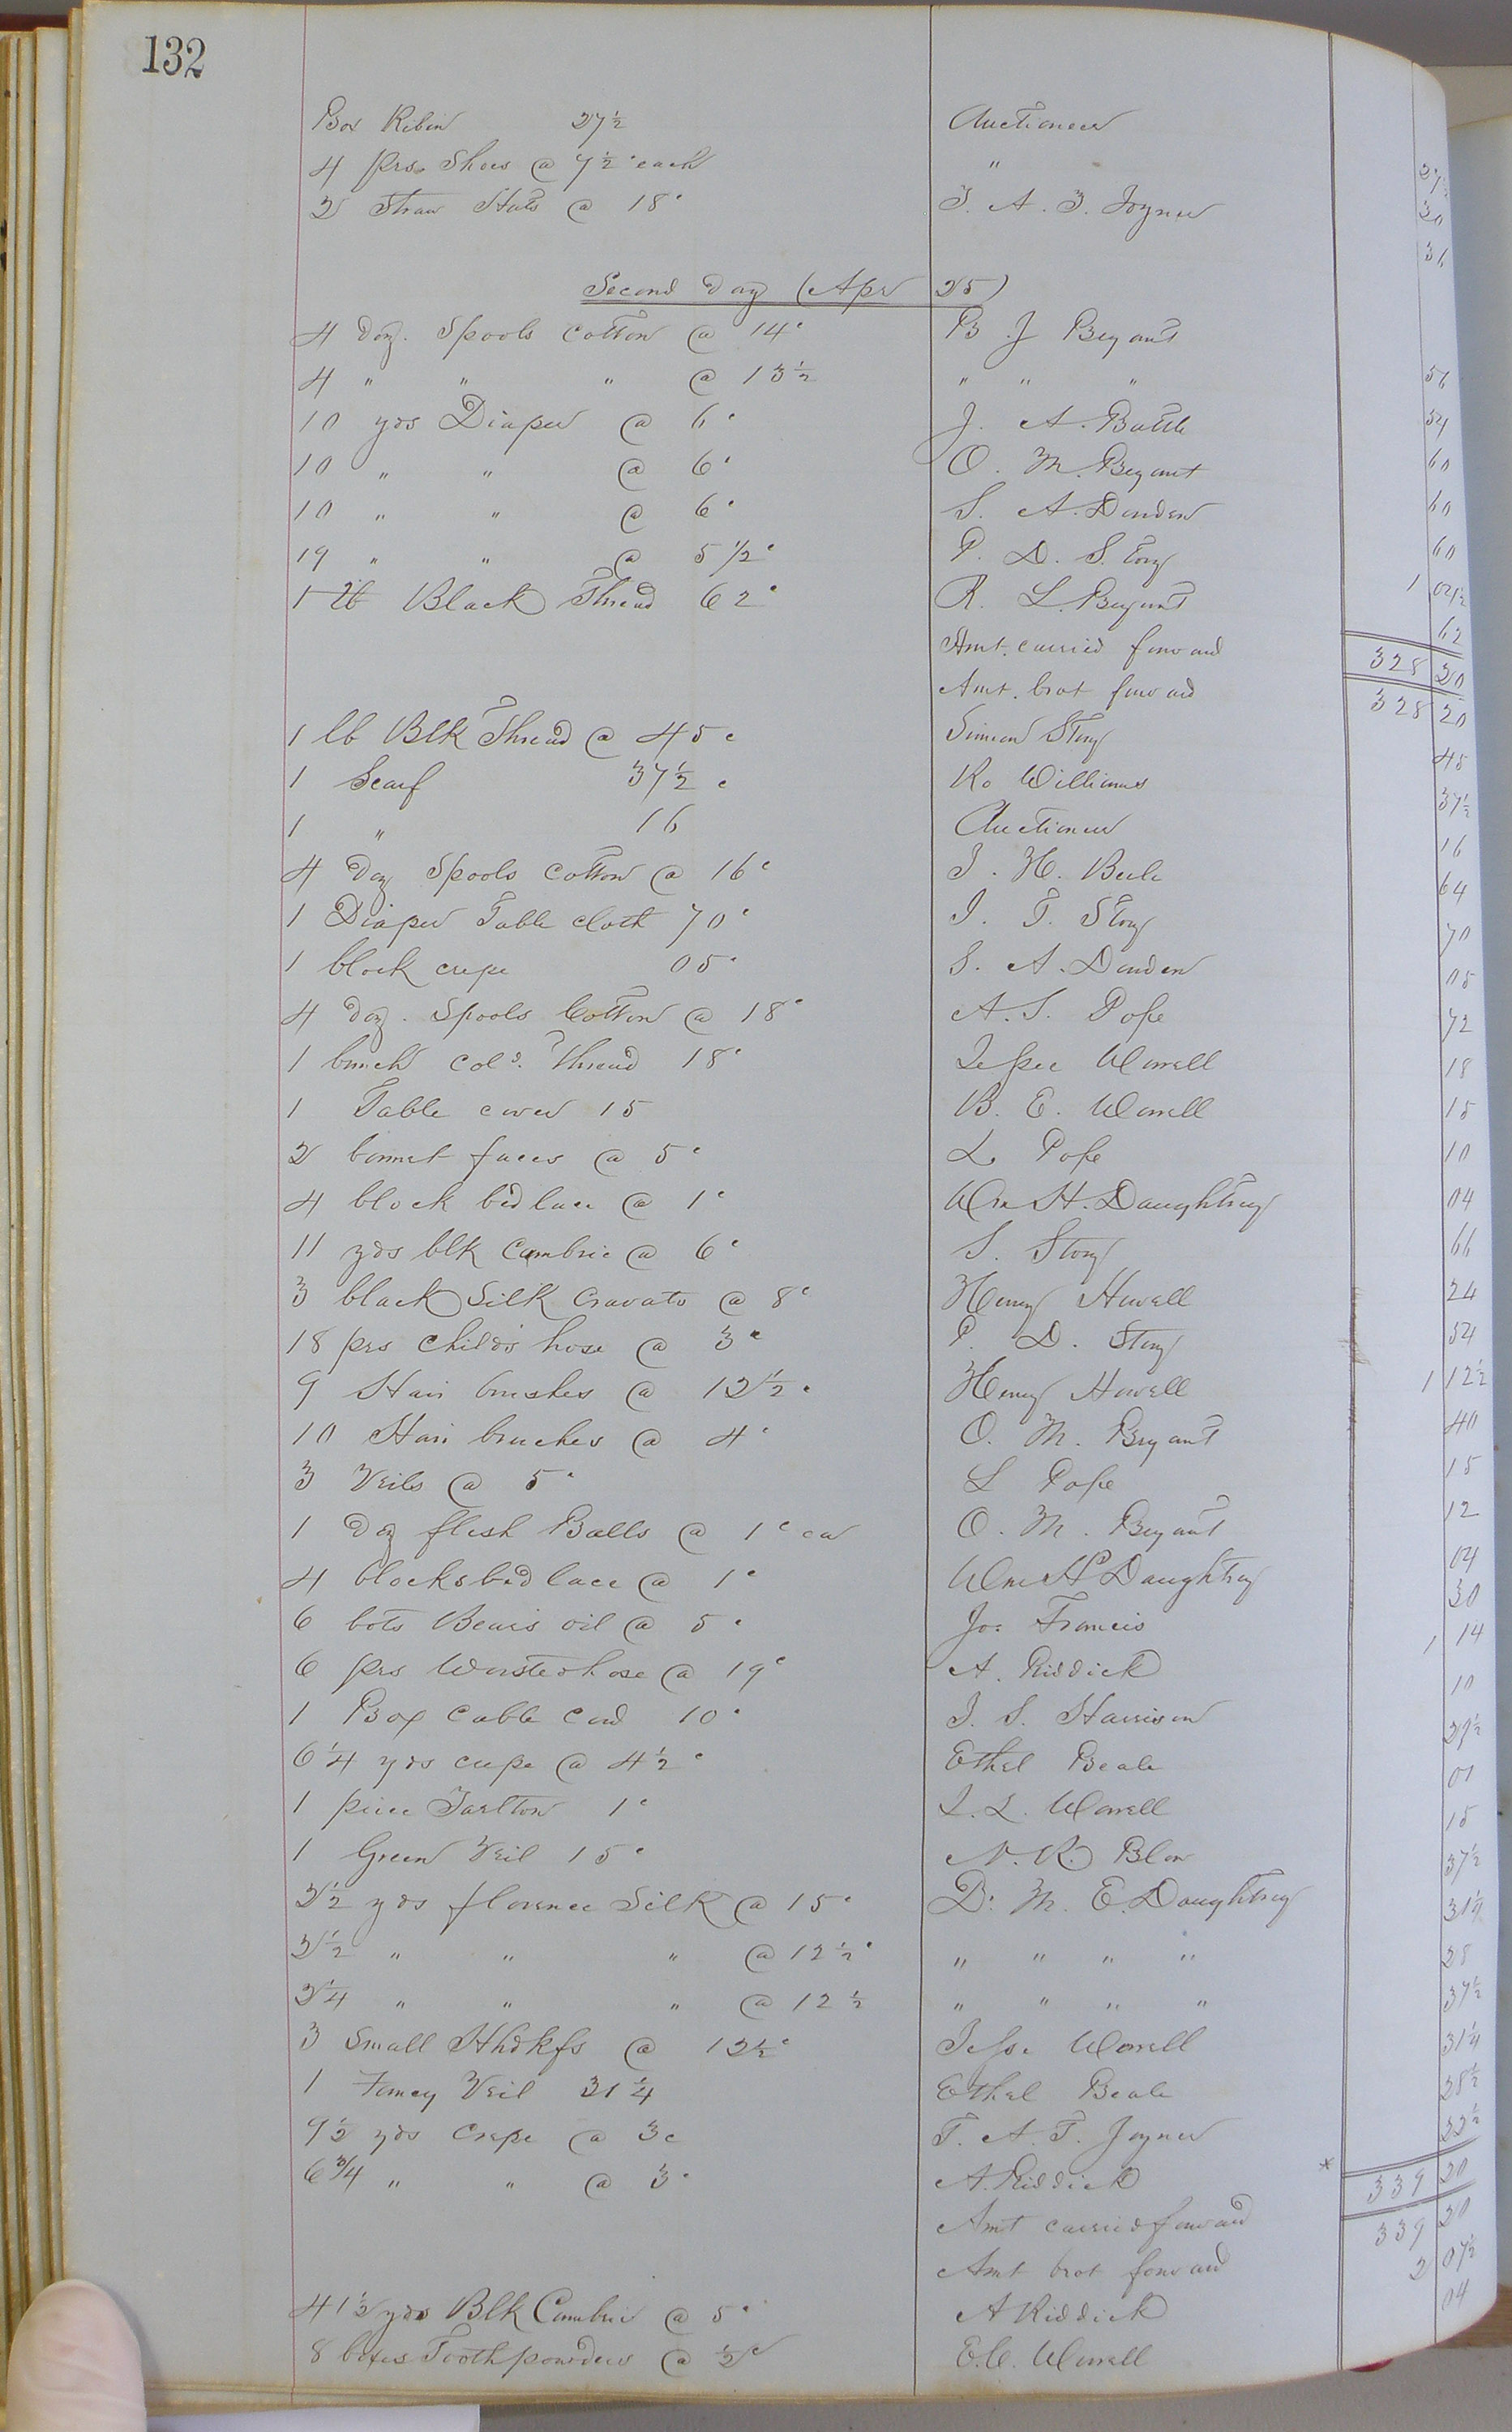 132
Box Ribin 27½ Auctioneer 27½
4 prs. Shoes @ 7½ c each " 30
2 Straw Hats @ 18c T. A. T. Joyner 36
Second day (Apr 25)
4 doz. Spools Cotton @ 14c B. J Bryant 56
4 " " " @ 13½ " " " 54
10 yds Diaper @ 6c J. A. Battle 60
10 " " @ 6c O. M. Bryant 60
10 " " @ 6c S. A. Darden 60
19 " " @ 5½c P. D. S. Tory 1 02½
1 lb Black Thread 62c R. L. Bryant 62
Amt. carried forward 328 20
Amt. brot forward 328 20
1 lb Blk Thread @ 45c Simeon Story 45
1 Scarf 37½c Ro Williams 37½
1 " 16 Auctioneer 16
4 doz Spools Cotton @ 16c J. H. Beele 64
1 Diaper Table Cloth 70c I. T. Story 70
1 block crepe 05c S. A. Darden 05
4 doz. Spools Cotton @ 18c A. S. Pope 72
1 bunch Cold. Thread 18c Jessee Worrell 18
1 Table cover 15 B. E. Worrell 15
2 bonnet faces @ 5c L. Pope 10
4 block bed lace @ 1c Wm H. Daughtrey 04
11 yds blk Cambric @ 6c S. Story 66
3 black Silk Cravats @ 8c Henry Howell 24
18 prs Childs hose @ 3c P. D. Story 54
9 Hair brushes @ 12½c Henry Howell 1 12½
10 Hair brushes @ 4c O. M. Bryant 40
3 Veils @ 5c L Pope 15
1 Doz flesh Balls @ 1c ea O. M. Bryant 12
4 blocks bed lace @ 1c Wm H Daughtrey 04
6 bots Bears oil @ 5c Jos Francis 30
6 prs Worsted hose @ 19c A. Riddick 1 14
1 Box Cable Cord 10c J. S. Harrison 10
6¼ yds crepe @ 4½c Ethel Beale 29½
1 piece Tarlton 1c J. L. Worrell 01
1 Green Veil 15c N. R. Blow 15
2½ yds florence Silk @ 15c D. M. E. Daughtrey 37½
2½ " " " @ 12½c " " " " 31¼
2¼ " " " @ 12½ " " " " 28
3 Small Hhdkfs @ 12½c Jesse Worrell 37½
1 Fancy Veil 31¼ Ethel Beale 31¼
9½ yds Crepe @ 3c T. A. T. Joyner 28½
6¾ " " @ 3c A. Riddick 22½
Amt carried forward * 339 20
Amt brot forward 339 20
41½ yds Blk Cambric @ 5c A Riddick 2 07½
8 boxes Tooth powders @ ½c E. C. Worrell 04